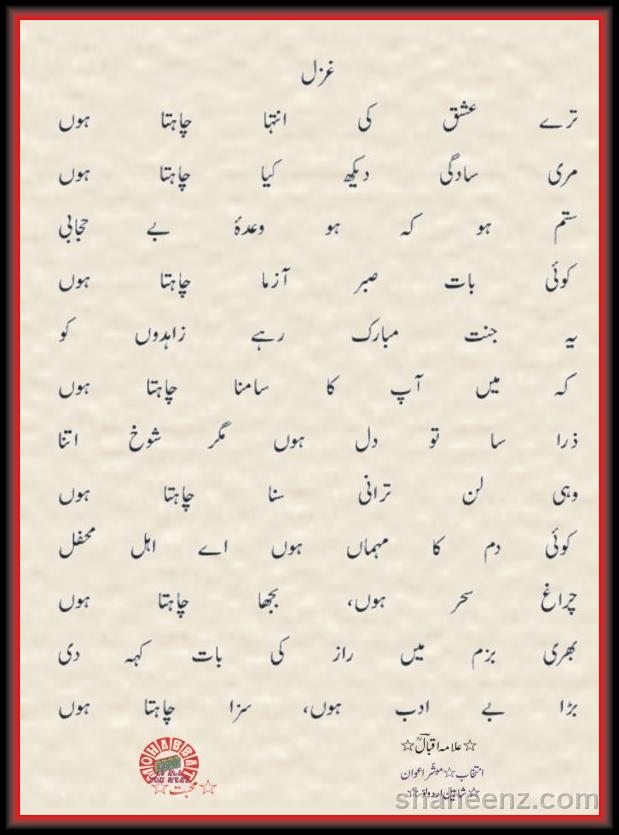 غزل
ترے عشق کی انتہا چاہتا ہوں
مری سادگی دیکھ کیا چاہتا ہوں
ستم ہو کہ ہو وعدۂ بے حجابی
کوئی بات صبر آزما چاہتا ہوں
یہ جنت مبارک رہے زاہدوں کو
کہ میں آپ کا سامنا چاہتا ہوں
ذرا سا تو دل ہوں مگر شوخ اتنا
وہی لن ترانی سنا چاہتا ہوں
کوئی دم کا مہماں ہوں اے اہل محفل
چراغ سحر ہوں، بجھا چاہتا ہوں
بھری بزم میں راز کی بات کہہ دی
بڑا بے ادب ہوں، سزا چاہتا ہوں
☆علامہ اقبالؒ☆
انتخاب☆مبشر اعوان
MOHABBAT
☆محبت☆
shaheenz.com